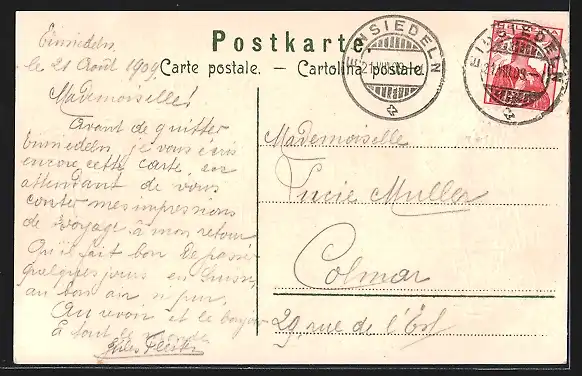 Postkarte.
Carte postale. — Cartolina postale.
EINSIEDELN
21.VIII.09.
EINSIEDELN
21.VIII.09.
Einsiedeln,
le 21 Août 1909
Mademoiselle!
Avant de quitter
Einsiedeln je vous écris
encore cette carte, en
attendant de vous
conter mes impressions
de voyage à mon retour
Qu'il fait bon de passer
quelques jours en Suisse,
au bon air si pur,
Au revoir et le bonjour
à tout le
Mademoiselle
Lucie Muller
Colmar
29, rue de l'Est